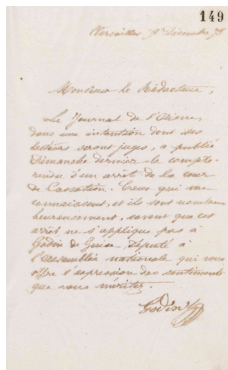 149
Versailles 9 Décembre 75
Monsieur le Rédacteur,
Le Journal de l'Aisne,
dans une intention dont ses
lecteurs seront juges, a publié
Dimanche dernier le compte-
rendu d'un arrêt de la cour
de Cassation. Ceux qui me
connaissent, et ils sont nombreux
heureusement, savent que cet
arrêt ne s'applique pas à
Godin de Guise, Député à
l'Assemblée nationale qui vous
offre l'expression des sentiments
que vous méritez.
Godin